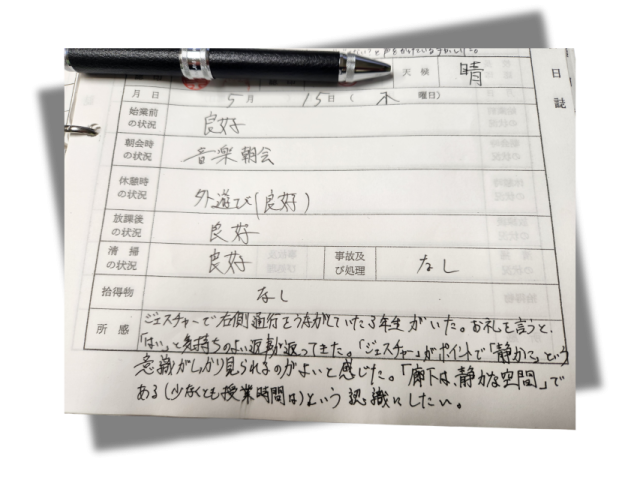 天候 晴
日誌
月日 5月 15日(木曜日)
始業前の状況 良好
朝会時の状況 音楽朝会
休憩時の状況 外遊び(良好)
放課後の状況 良好
清掃の状況 良好 事故及び処理 なし
拾得物 なし
所感 ジェスチャーで右側通行をうながしていた3年生がいた。お礼を言うと、
「はい」と気持ちのよい返事が返ってきた。「ジェスチャー」がポイントで「静かに」という
意識がしっかり見られるのがよいと感じた。「廊下は、静かな空間」で
ある(少なくとも授業時間は)という認識にしたい。